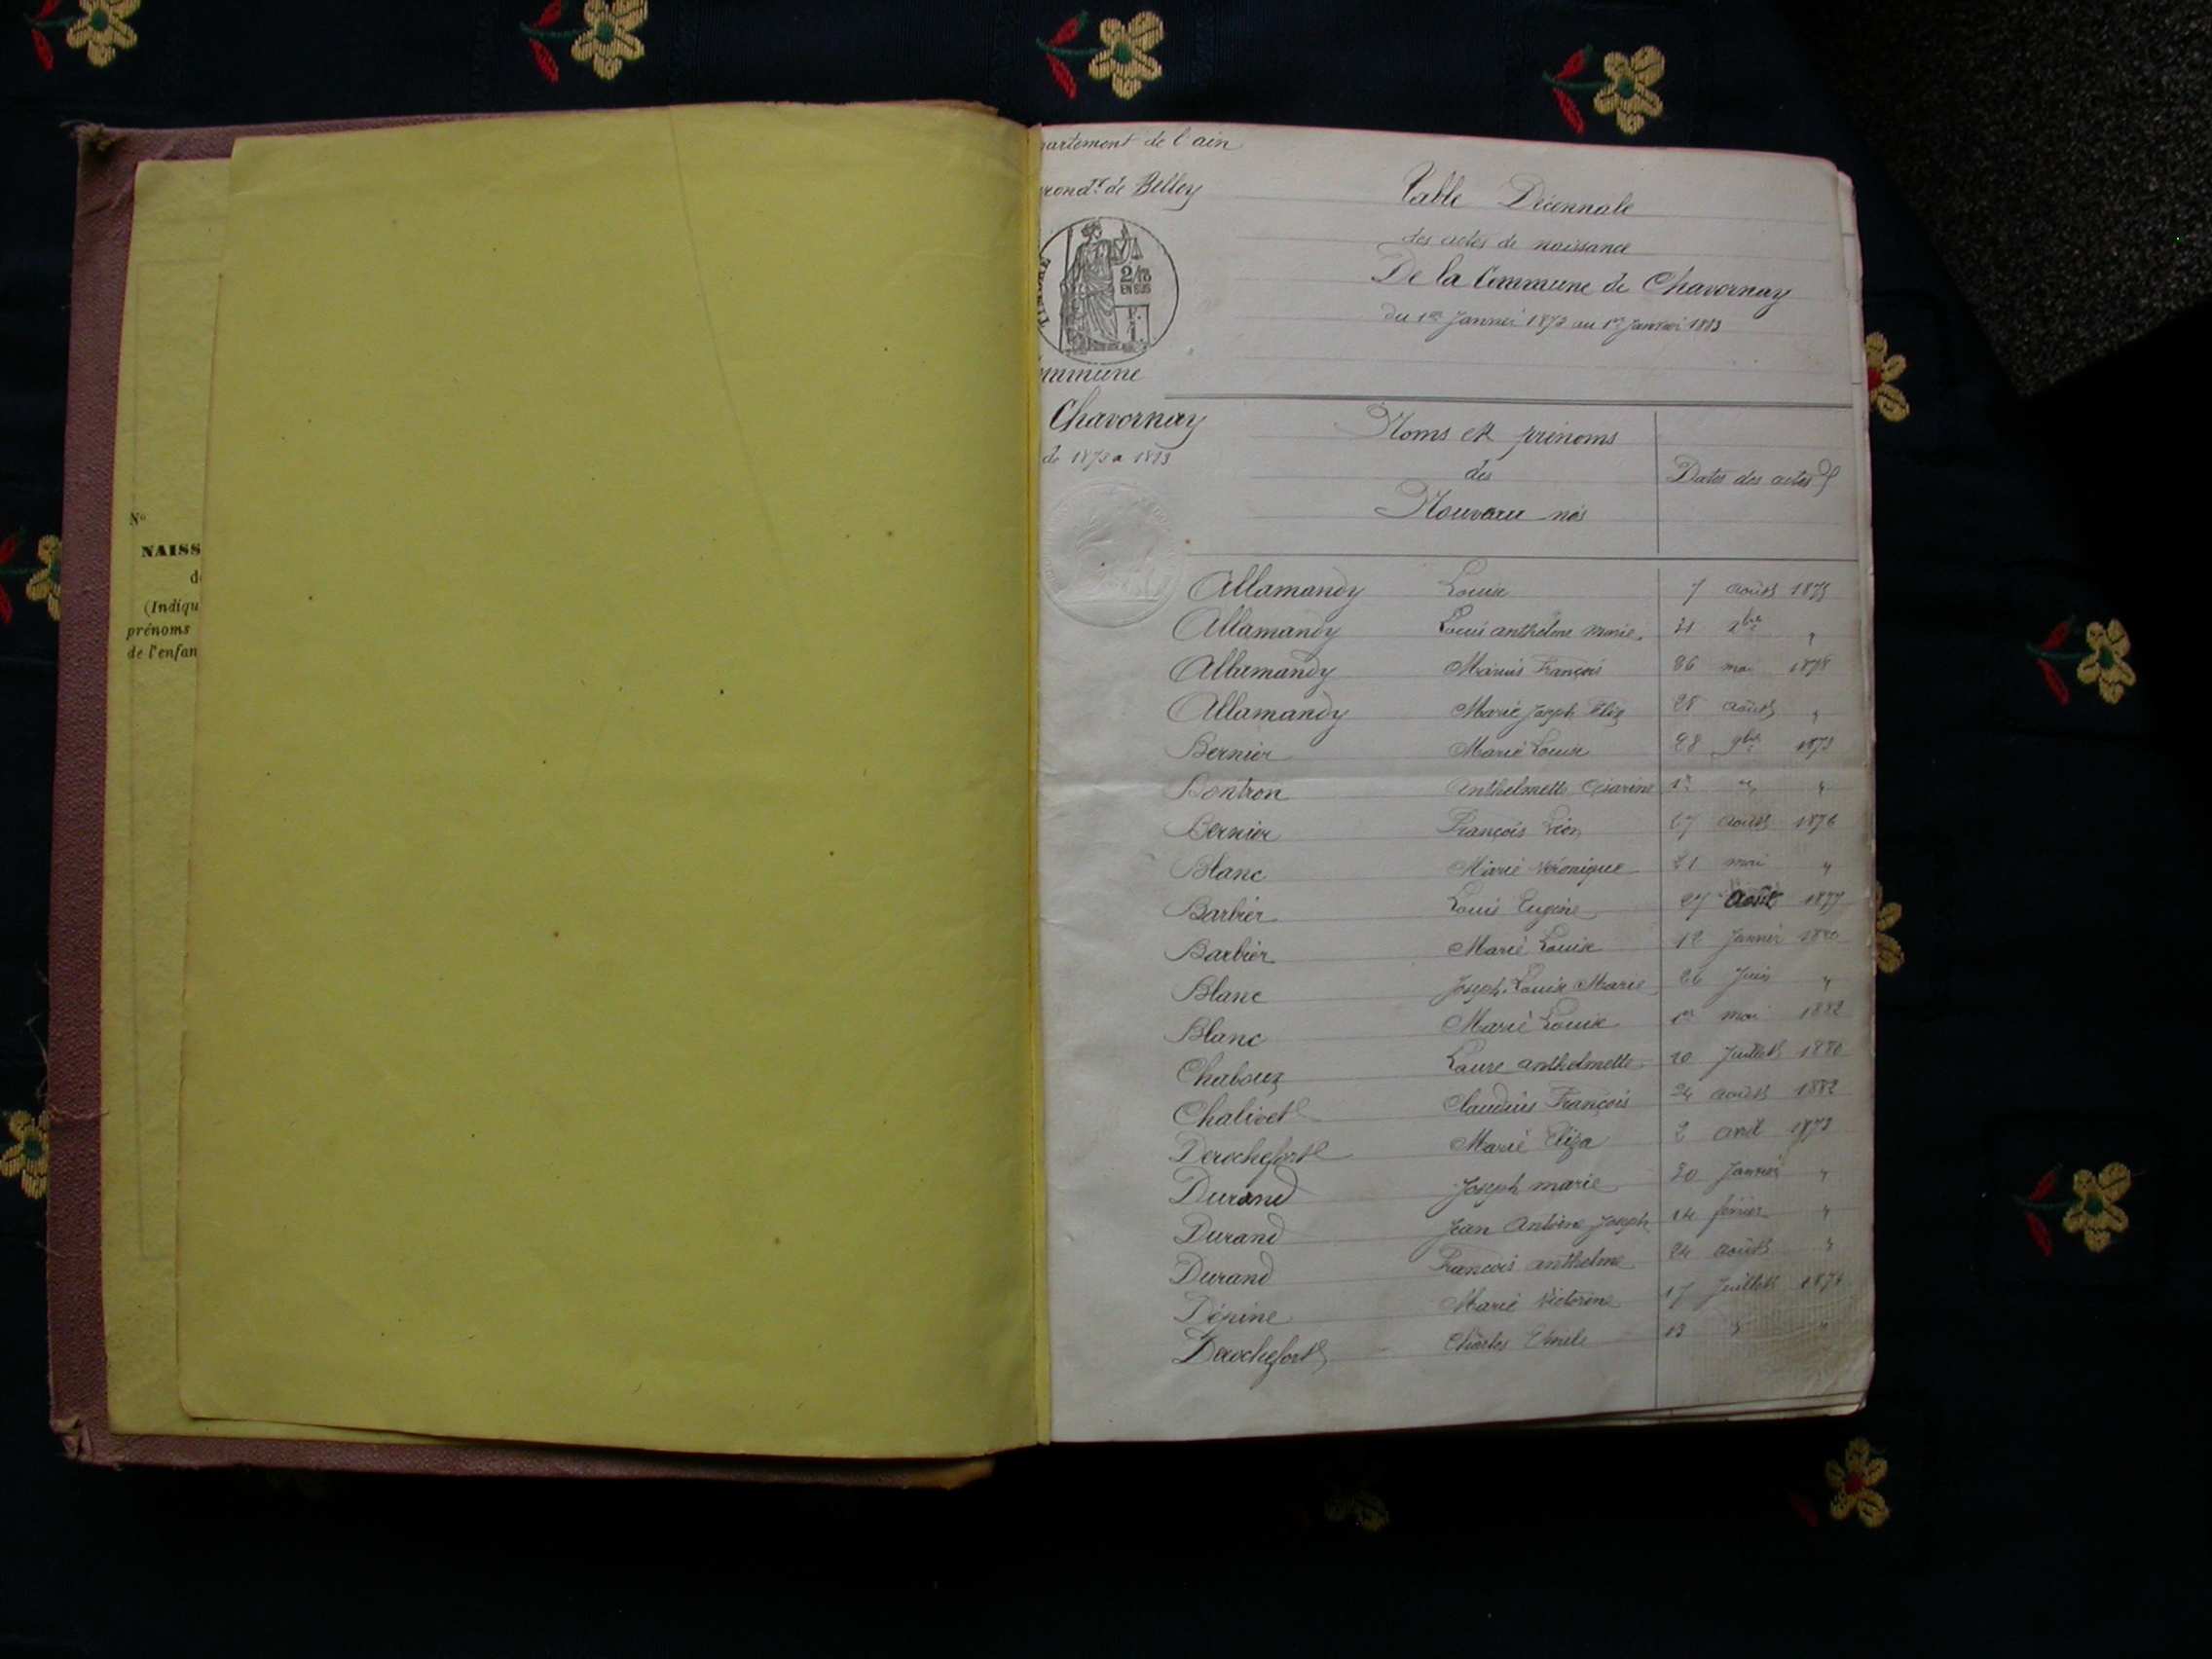 No
NAISS
d
(Indiqu
prénoms
de l'enfan
partement de l'ain
rrondt de Belley
TIMBRE
2/10
EN SUS
mmune
Chavornay
de 1873 a 1883
Table Décennale
des actes de naissance
De la Commune de Chavornay
du 1er Janvier 1873 au 1er Janvier 1883
Noms et prénoms
des
Nouveau nés
Dates des actes
Allamandy Louise 7 août 1875
Allamandy Louis anthelme Marie 21 bre "
Allamandy Marius François 26 mai 1878
Allamandy Marie Joseph 28 août "
Bernier Marie Louise 28 9bre 1873
Bontron Anthelmette Césarine 1er " "
Bernier François Léon 27 août 1876
Blanc Marie Véronique 21 mai "
Barbier Louis Eugène 27 août 1877
Barbier Marie Louise 12 Janvier 1880
Blanc Joseph Louis Marie 26 Juin "
Blanc Marie Louise 1er mai 1882
Chabouz Laure anthelmette 20 Juillet 1880
Chalivet Claudius François 24 août 1882
Derochefort Marie Eliza 2 avril 1873
Durand Joseph marie 20 Janvier "
Durand Jean Antoine Joseph 14 février "
Durand François anthelme 24 août "
Dépine Marie Victorine 17 Juillet 1874
Derochefort Charles Emile 13 " "